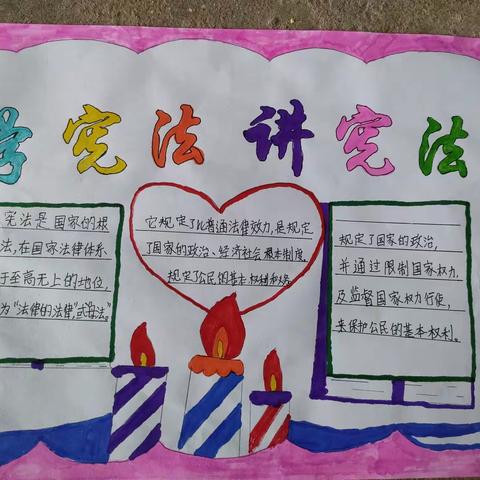 学宪法 讲宪法
宪法是国家的根
法,在国家法律体系
于至高无上的地位,
为"法律的法律",或"母法"。
它规定了比普通法律效力,是规定
了国家的政治、经济社会根本制度,
规定了公民的基本权利和义务。
规定了国家的政治,
并通过限制国家权力,
及监督国家权力行使,
来保护公民的基本权利。